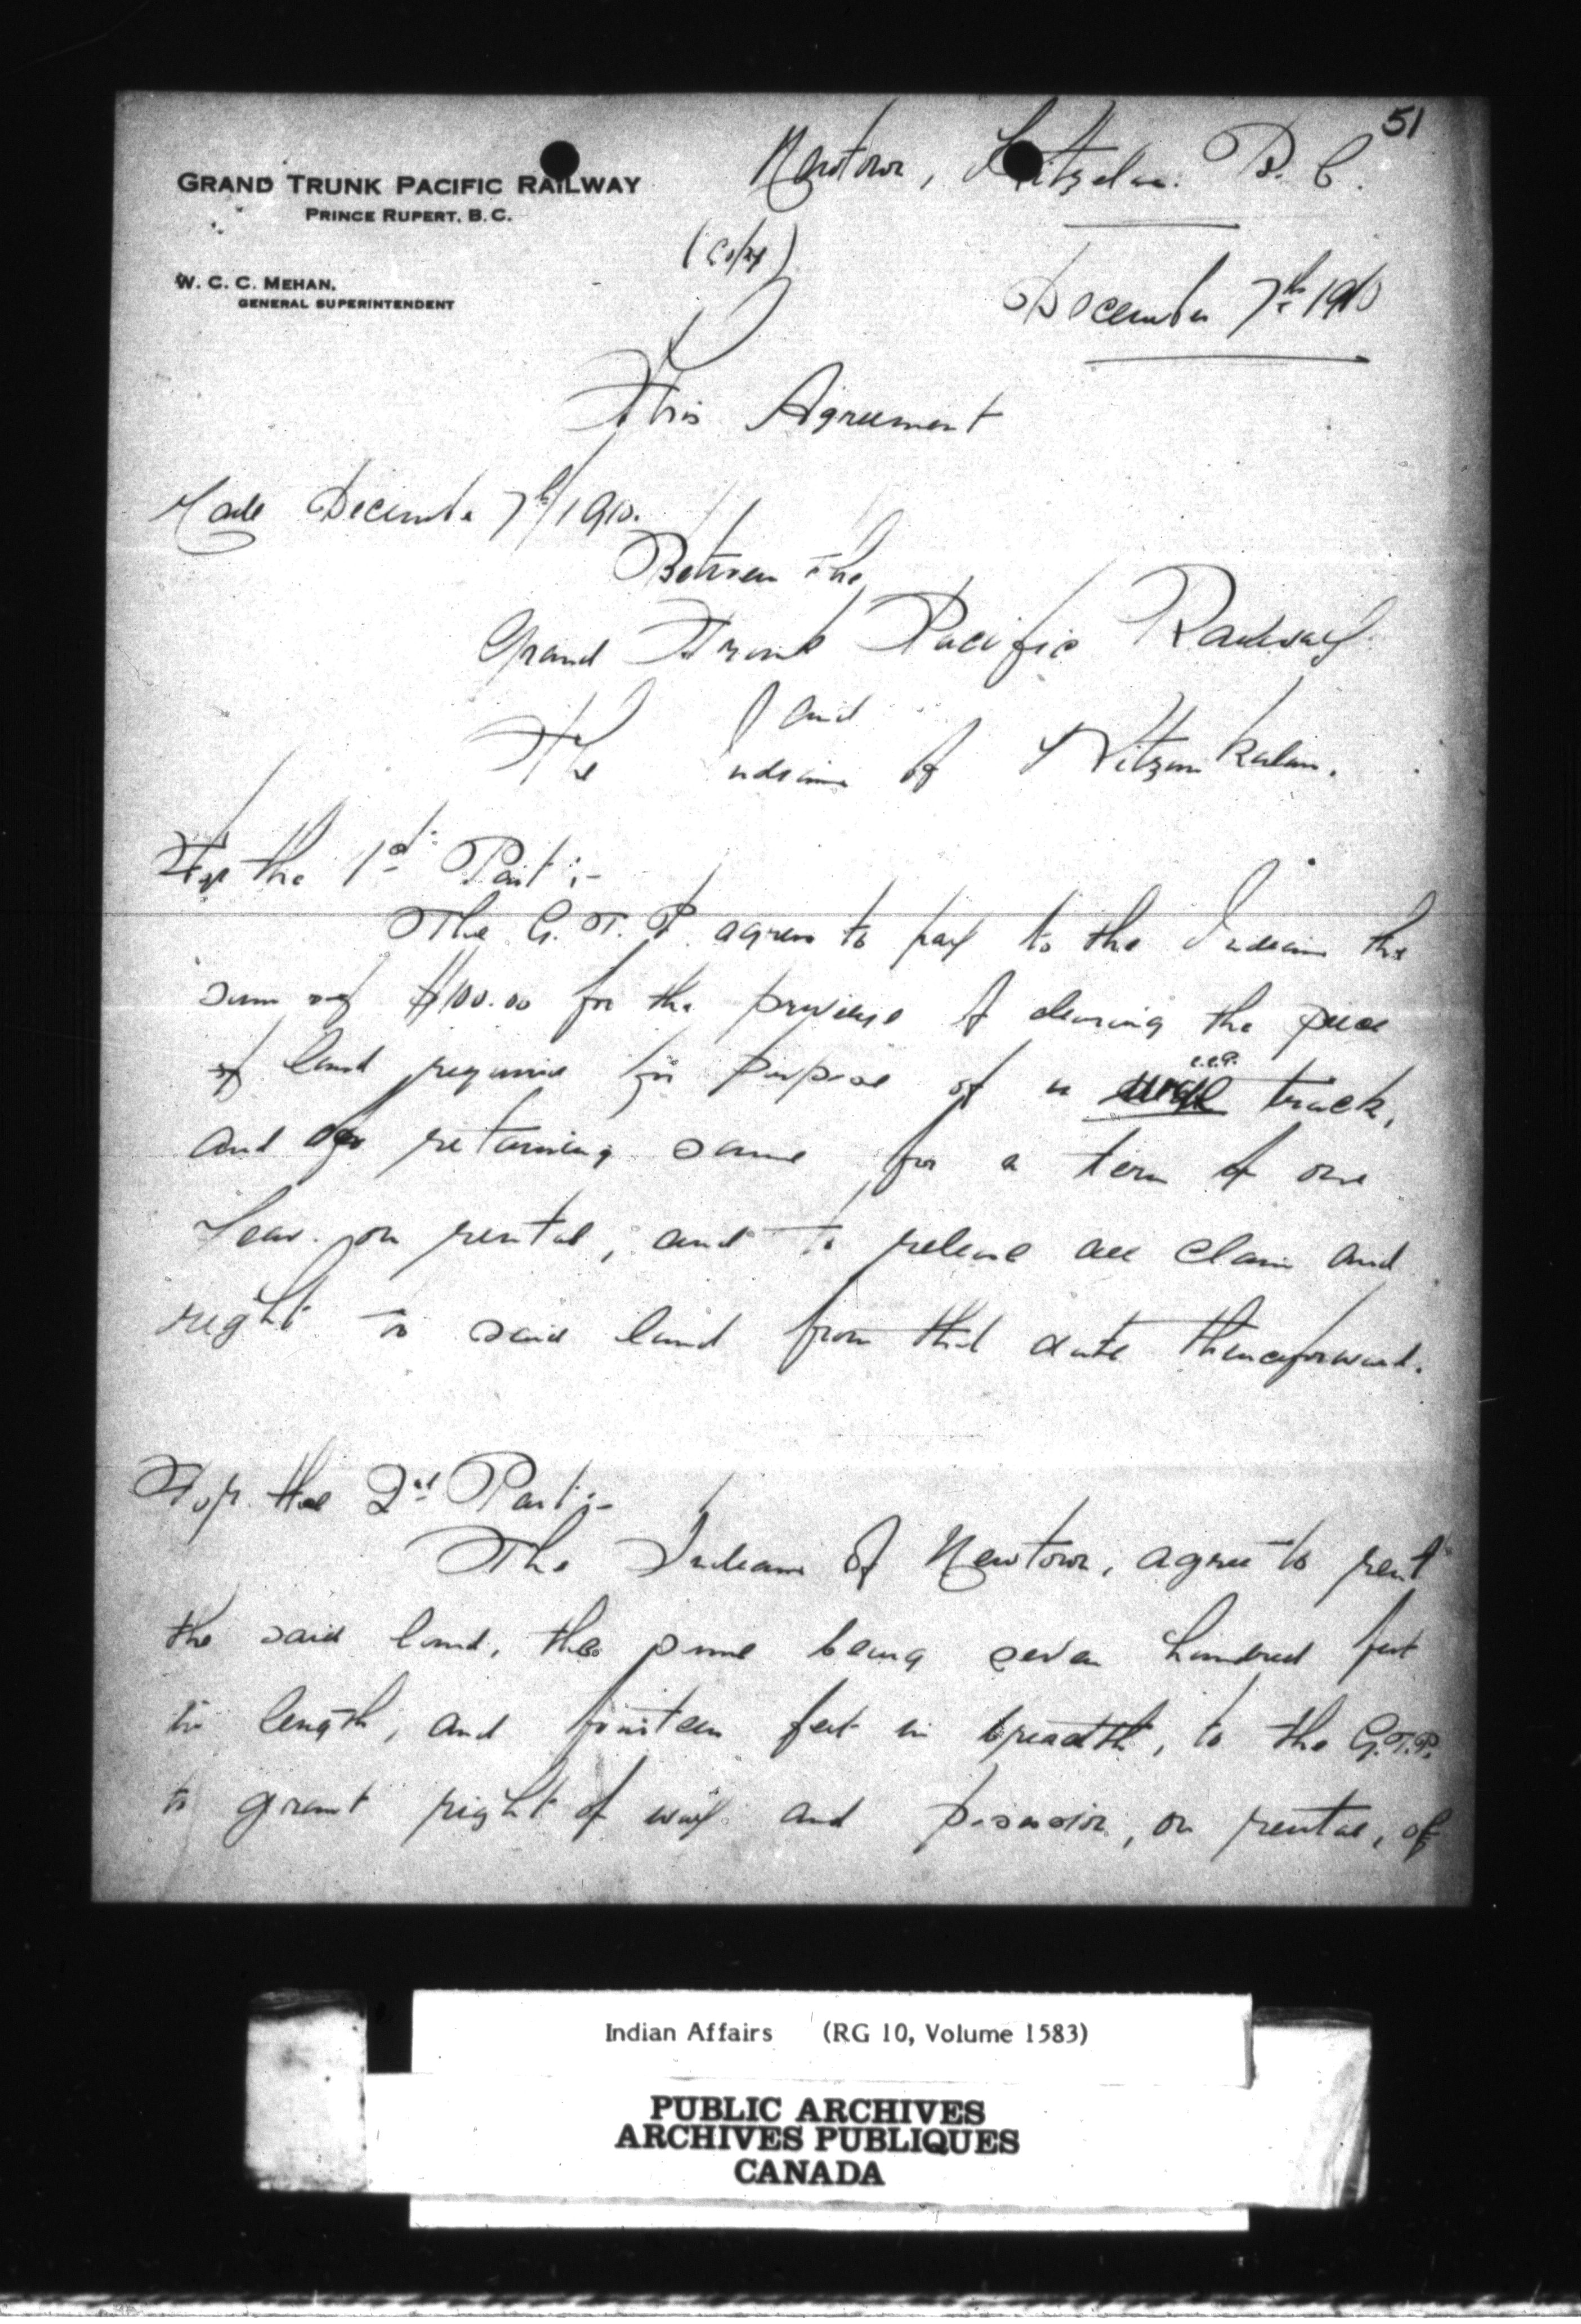 51
GRAND TRUNK PACIFIC RAILWAY
PRINCE RUPERT, B.C.
Newtown, Kitzelas. B. C.
(Copy)
W. C. C. MEHAN,
GENERAL SUPERINTENDENT
December 7th 1910
This Agreement
Made December 7th/1910.
Between the
Grand Trunk Pacific Railway
and
The Indians of
For the 1st Part:-
The G. T. P. agree to pay to the Indians the
sum of $100.00 for the privilege of clearing the piece
of land required for purpose of a track,
and retaining same for a term of one
Year on rental, and to release all claim and
right to said land from that date thenceforward.
For the 2nd Part:-
The Indians of Newtown, agree to rent
the said land, the same being seven hundred feet
in length, and fourteen feet in breadth, to the G.T.P.
to grant right of way and possession, on rental, of
Indian Affairs (RG 10, Volume 1583)
PUBLIC ARCHIVES
ARCHIVES PUBLIQUES
CANADA